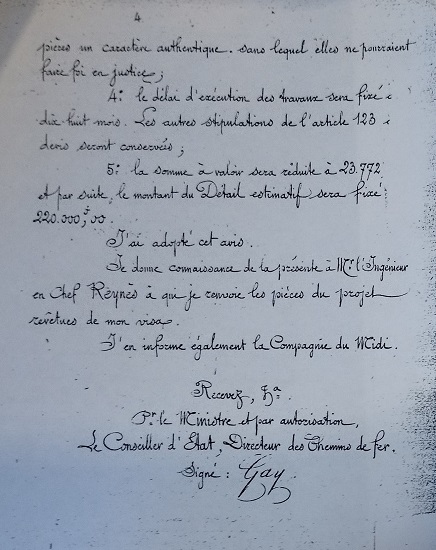 4
pièces un caractère authentique. sans lequel elles ne pourraient
faire foi en justice;
4: le délai d'exécution des travaux sera fixé à
dix huit mois. Les autres stipulations de l'article 123
devis seront conservées;
5: la somme à valoir sera réduite à 23.772
et par suite, le montant du Détail estimatif sera fixé:
220.000,f00.
J'ai adopté cet avis.
Je donne connaissance de la présente à Mr l'Ingénieur
en Chef Reynès à qui je renvoie les pièces du projet
revêtues de mon visa.
J'en informe également la Compagnie du Midi.
Recevez, &a.
Pr le Ministre et par autorisation,
Le Conseiller d'Etat, Directeur des Chemins de fer.
Signé: Gay